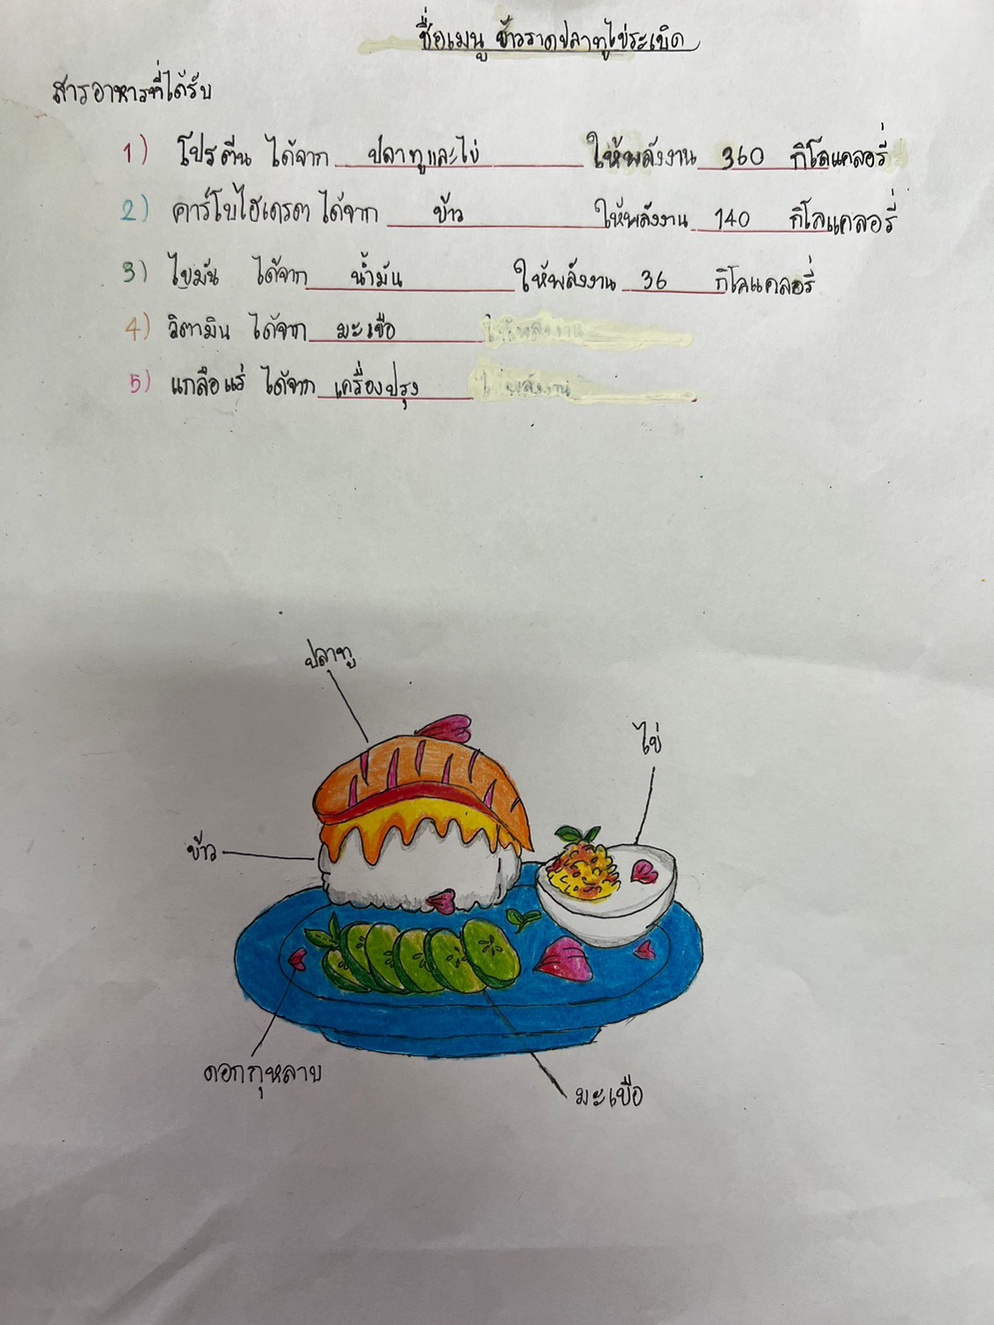 ชื่อเมนู ข้าวราดปลาทูไข่ระเบิด
สารอาหารที่ได้รับ
1) โปรตีน ได้จาก ปลาทูและไข่ ให้พลังงาน 360 กิโลแคลอรี่
2) คาร์โบไฮเดรตา ได้จาก ข้าว ให้พลังงาน 140 กิโลแคลอรี่
3) ไขมัน ได้จาก น้ำมัน ให้พลังงาน 36 กิโลแคลอรี่
4) วิตามิน ได้จาก มะเขือ ให้พลังงาน
5) แกลือแร่ ได้จาก เครื่องปรุง ให้พลังงาน
ปลาทู
ไข่
ข้าว
ดอกกุหลาบ
มะเขือ